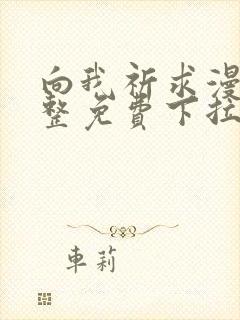 向我祈求漫
整免費下拉
車莉